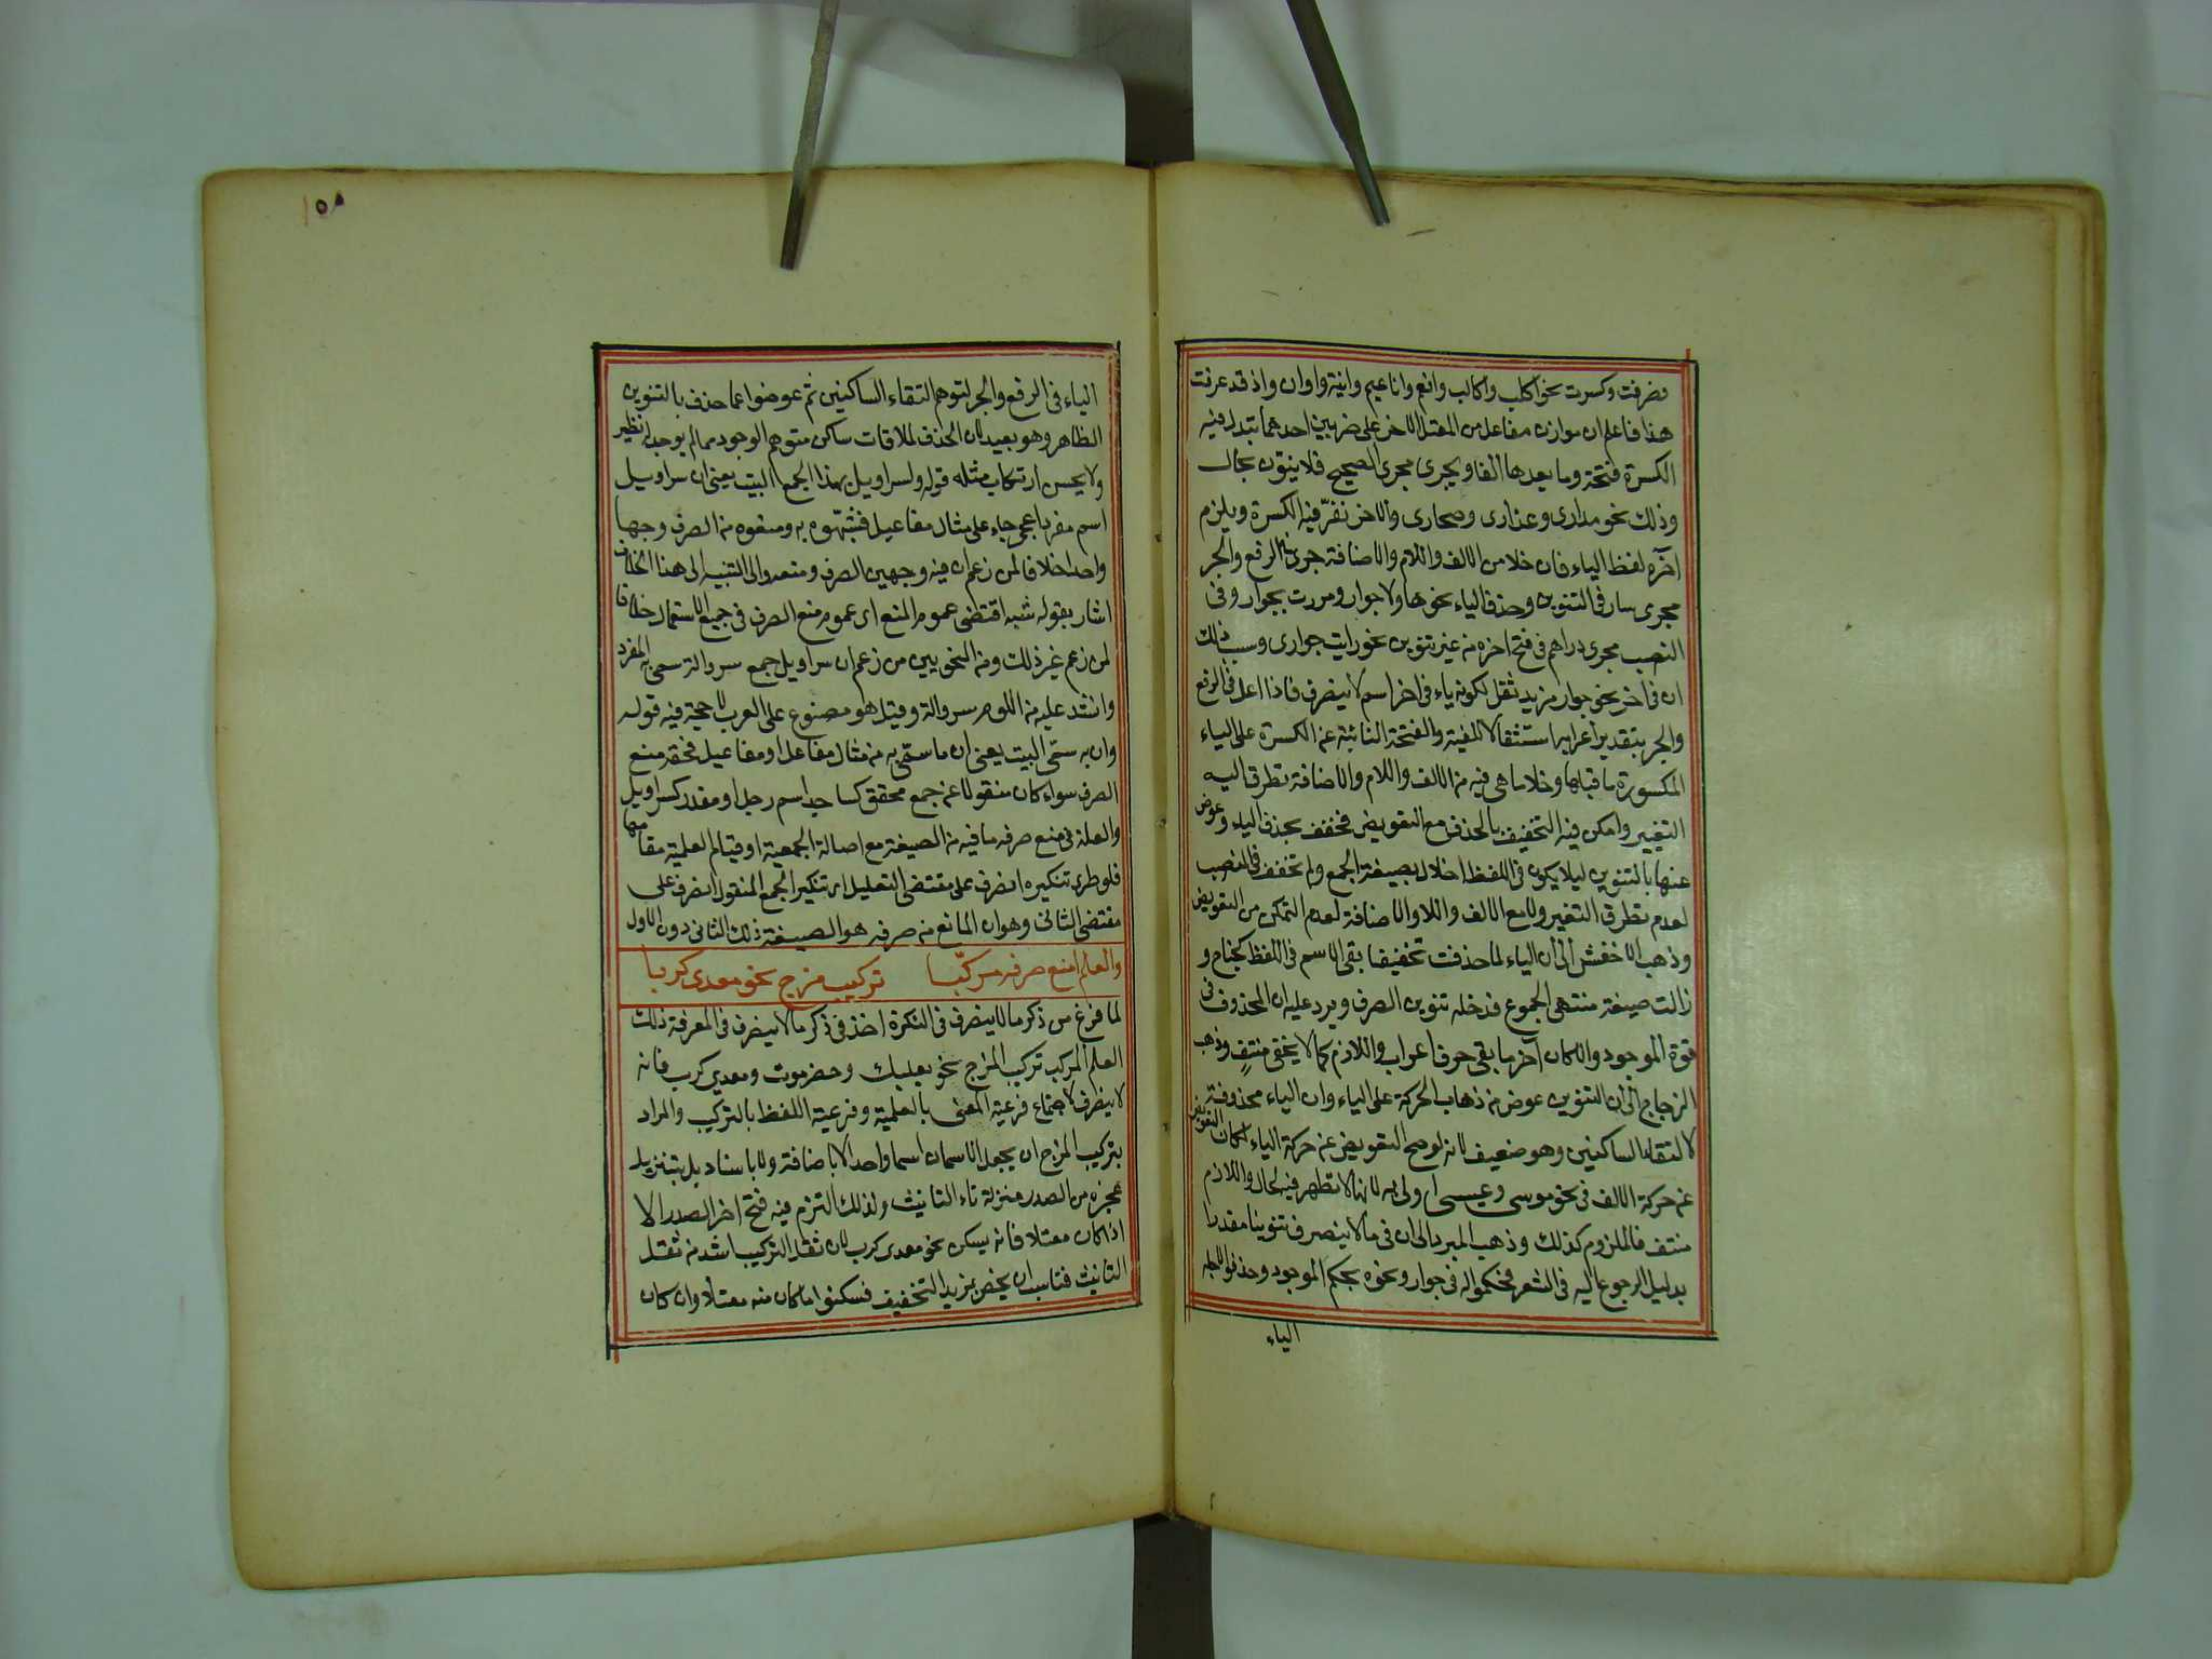 فصرفت وكسرت نحو اكلب واكالب وانعم واناعيم وانية واوان واذ قد عرفت
هذا فاعلم ان موازن مفاعل من المعتل الاخر على ضربين احدهما تبدل فيه
الكسرة فتحة وما بعدها الفا ويجرى مجرى الصحيح فلا ينون بحال
وذلك نحو مدارى وعذارى وصحارى والاخر تقر فيه الكسرة ويلزم
آخره لفظ الياء فان خلا من الالف واللام والاضافة جرى فى الرفع والجر
مجرى سار فى التنوين وحذف الياء نحو هاولا جوار ومررت بجوار وفى
النصب مجرى دراهم فى فتح اخره من غير تنوين نحو رايت جوارى وسبب ذلك
ان فى اخر نحو جوار مزيد ثقل لكونه ياء فى اخر اسم لا ينصرف فاذا اعل فى الرفع
والجر بتقدير اعرابه استثقالا للضمة والفتحة النائبة عن الكسرة على الياء
المكسورة ما قبلها وخلا ما هى فيه من الالف واللام والاضافة تطرق اليه
التغيير وامكن فيه التخفيف بالحذف مع التعويض فخفف بحذف الياء وعوض
عنها بالتنوين ليلا يكون فى اللفظ اخلال بصيغة الجمع ولم تخفف فى النصب
لعدم تطرق التغير ولا مع الالف واللا والاضافة لعدم التمكن من التعويض
وذهب الاخفش الى ان الياء لما حذفت تخفيفا بقى الاسم فى اللفظ كجناح و
زالت صيغة منتهى الجموع فدخله تنوين الصرف ويرد عليه ان المحذوف فى
قوة الموجود والا كان آخر ما بقى حرف اعراب واللازم كما لا يخفى منتف وذهب
الزجاج الى ان التنوين عوض من ذهاب الحركة على الياء وان الياء محذوفة
لالتقاء الساكنين وهو ضعيف لانه لو صح التعويض عن حركة الياء لكان التعويض
عن حركة الالف فى نحو موسى وعيسى اولى به لانها لا تظهر فيه بحال واللازم
منتف فالملزوم كذلك وذهب المبرد الى ان فى ما لا ينصرف تنوينا مقدرا
بدليل الرجوع اليه فى الشعر فحكموا له فى جوار ونحوه بحكم الموجود وحذفوا لاجله
الياء
١٥٨
الياء فى الرفع والجر لتوهم التقاء الساكنين ثم عوضوا عما حذف بالتنوين
الظاهر وهو بعيد لان الحذف لملاقات ساكن متوهم الوجود مما لم يوجد له نظير
ولا يحسن ارتكاب مثله قوله ولسراويل بهذا الجمع البيت يعنى ان سراويل
اسم مفرد اعجمى جاء على مثال مفاعيل فشبهوه به ومنعوه من الصرف وجها
واحدا خلافا لمن زعم ان فيه وجهين الصرف ومنعه والى التنبيه الى هذا الخلاف
اشار بقوله شبه اقتضى عموم المنع اى عموم منع الصرف فى جميع الاستعمال خلافا
لمن زعم غير ذلك ومن النحويين من زعم ان سراويل جمع سروالة سمى به المفرد
وانشد عليه من اللوم سروالة وقيل هو مصنوع على العرب لا حجة فيه قوله
وان به سمى البيت يعنى ان ما سمى به من مثال مفاعل او مفاعيل فحقه منع
الصرف سواء كان منقولا عن جمع محقق كساجد اسم رجل او مقدر كسراويل
والعلة فى منع صرفه ما فيه من الصيغة مع اصالة الجمعية او قيام العلمية مقامها
فلو طرى تنكيره انصرف على مقتضى التعليل اى تنكير الجمع المنقول انصرف على
مقتضى الثانى وهو ان المانع من صرفه هو الصيغة ذلك الثانى دون الاول
والعلم امنع صرفه مركبا تركيب مزج نحو معدى كربا
لما فرغ من ذكر ما لا ينصرف فى النكرة اخذ فى ذكر ما لا ينصرف فى المعرفة ذلك
العلم المركب تركيب المزج نحو بعلبك وحضرموت ومعدى كرب فانه
لا ينظرف لاجتماع فرعية المعنى بالعلمية وفرعية اللفظ بالتركيب والمراد
بتركيب المزج ان يجعل الاسمان اسما واحدا لا باضافة ولا باسناد بل بتنزيل
عجزه من الصدر منزلة تاء التانيث ولذلك التزم فيه فتح اخر الصدر الا
اذا كان معتلا فانه يسكن نحو معدى كرب لان ثقل التركيب اشد من ثقل
التانيث فناسب ان يخص بمزيد التخفيف فسكنوا ما كان منه معتلا وان كان